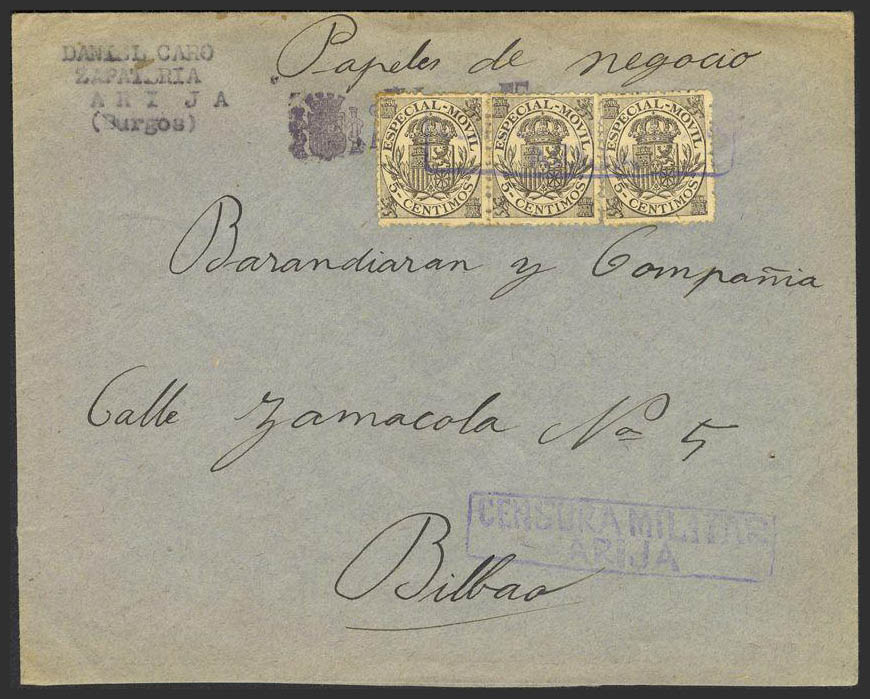 DANIEL CARO
ZAPATERIA
ARIJA
(Burgos)
Papeles de negocio
ESPECIAL-MÓVIL
5-CENTIMOS
ESPECIAL-MÓVIL
5-CENTIMOS
ESPECIAL-MÓVIL
5-CENTIMOS
Barandiaran y Compañia
Calle Zamacola Nº 5
Bilbao
CENSURA MILITAR
ARIJA